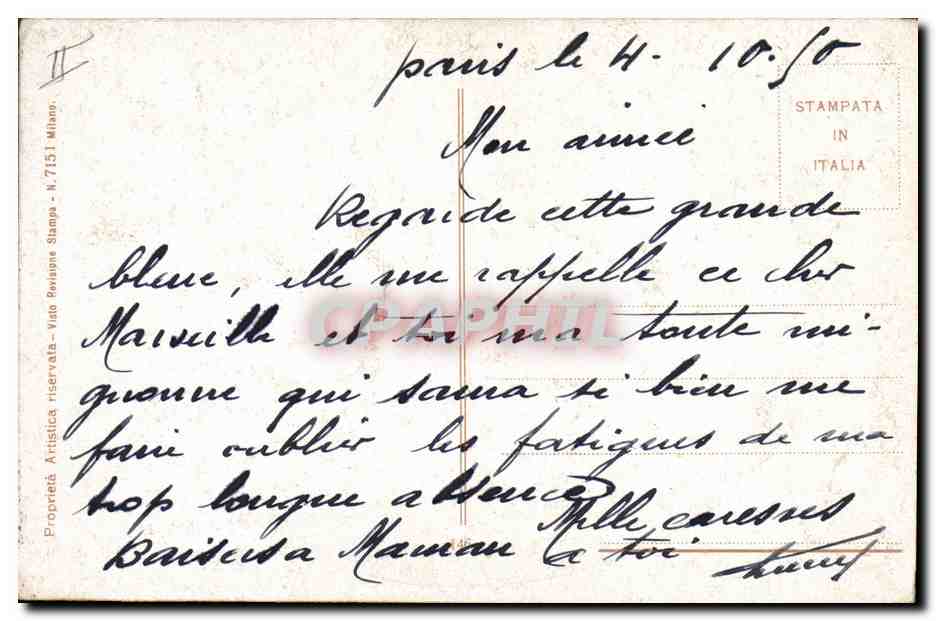 II
paris le 4. 10.50
STAMPATA
IN
ITALIA
Mon aimée
Regarde cette grande
bleue, elle me rappelle ce cher
Marseille et toi ma toute mi-
gnonne qui saura si bien me
faire oublier les fatigues de ma
trop longue absence
Mille caresses
Baisers a Maman a toi
Proprietà Artistica riservata - Visto Revisione Stampa - N. 7151 Milano.
CPAPHIL